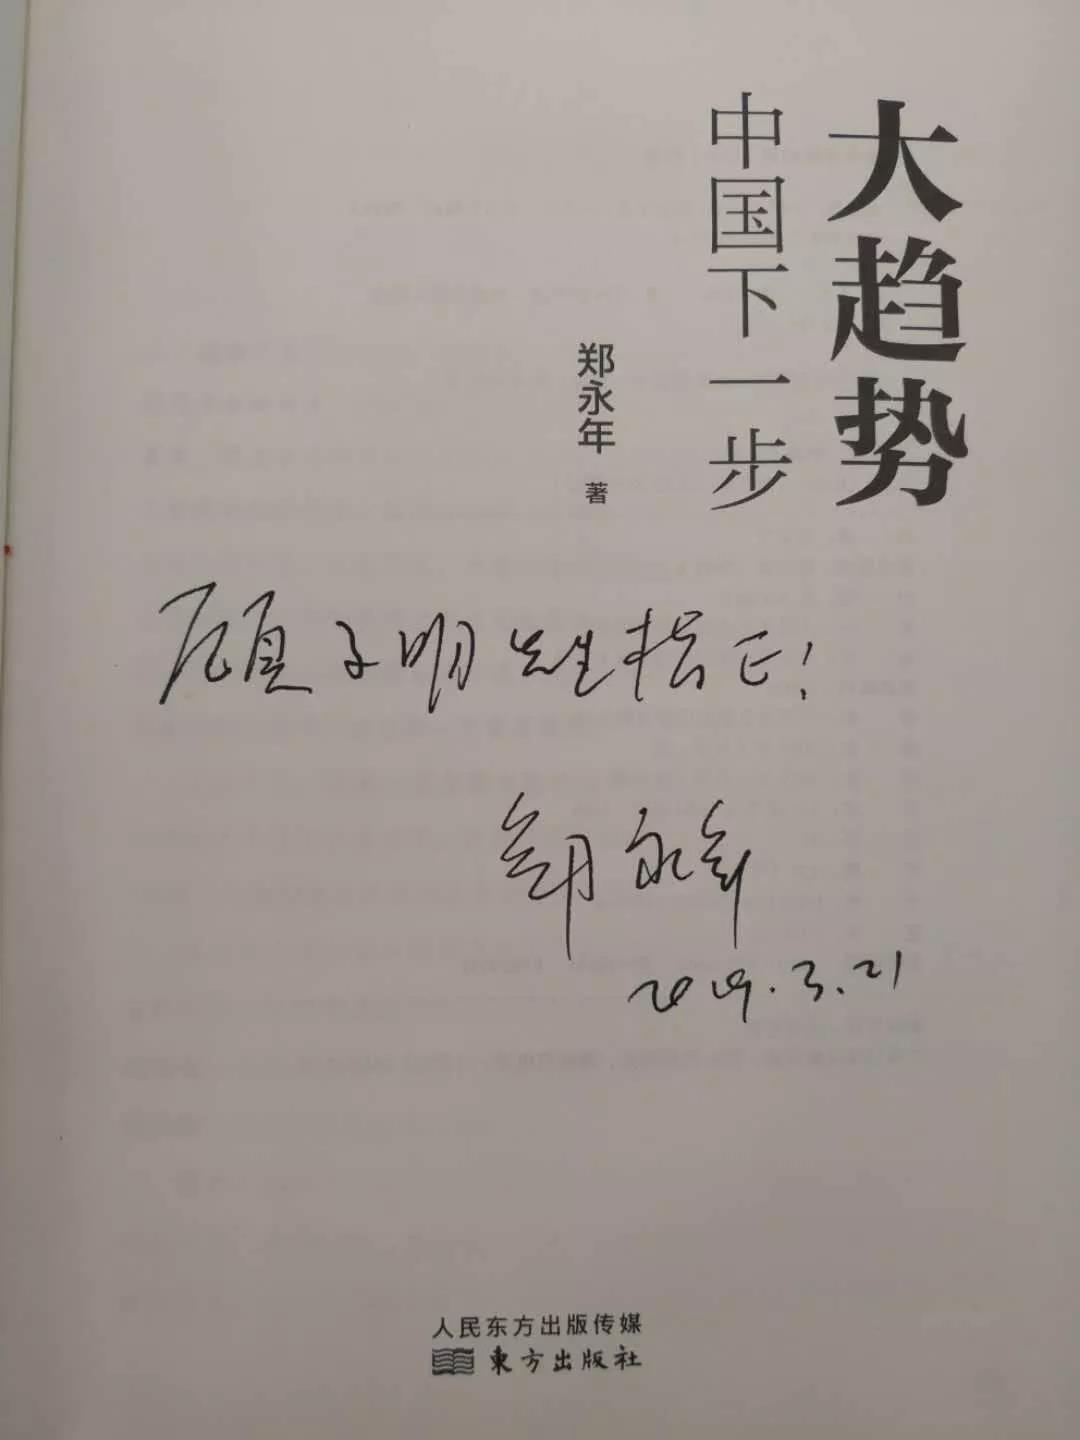 大趋势
中国下一步
郑永年 著
顾子明先生指正！
郑永年
2019.3.21
人民东方出版传媒
東方出版社